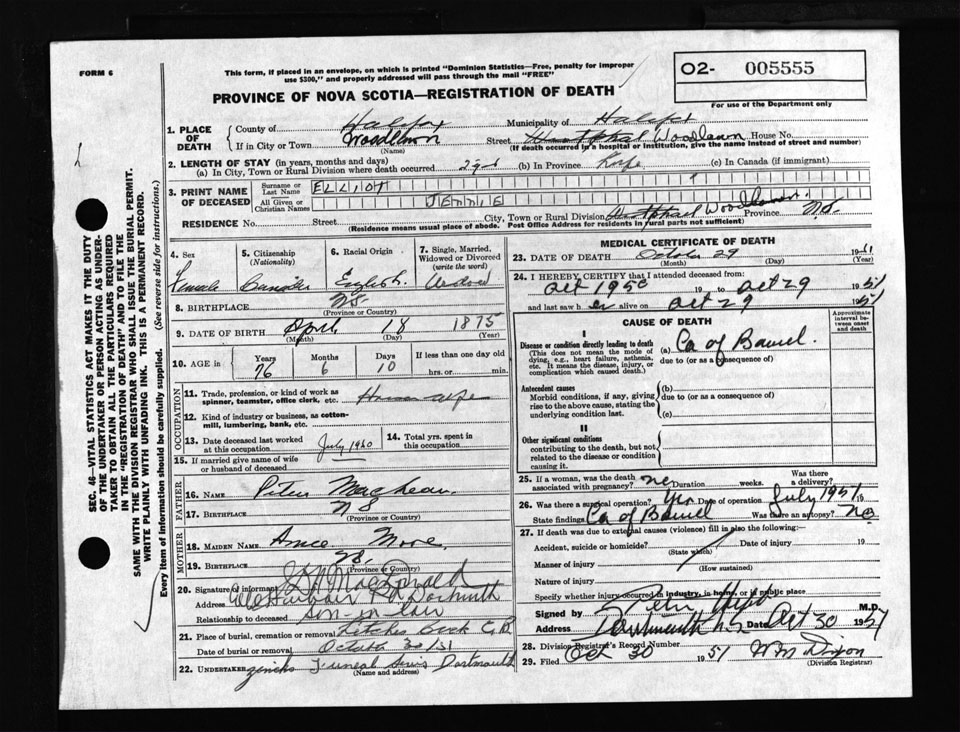 FORM 6
This form, if placed in an envelope, on which is printed "Dominion Statistics—Free, penalty for improper
use $300," and properly addressed will pass through the mail "FREE"
O2- 005555
For use of the Department only
PROVINCE OF NOVA SCOTIA—REGISTRATION OF DEATH
1. PLACE OF DEATH
County of Halifax Municipality of Halifax
If in City or Town Woodlawn (Name) Street Woodlawn House No.
(If death occurred in a hospital or institution, give the name instead of street and number)
2. LENGTH OF STAY (in years, months and days)
(a) In City, Town or Rural Division where death occurred (b) In Province Life (c) In Canada (if immigrant)
3. PRINT NAME OF DECEASED
Surname or Last Name ELLIOT
All Given or Christian Names JENNIE
RESIDENCE No. Street City, Town or Rural Division Woodlawn Province N.S.
(Residence means usual place of abode. Post Office Address for residents in rural parts not sufficient)
4. Sex Female
5. Citizenship (Nationality) Canadian
6. Racial Origin English
7. Single, Married, Widowed or Divorced (write the word) Widowed
8. BIRTHPLACE NS (Province or Country)
9. DATE OF BIRTH April (Month) 18 (Day) 1875 (Year)
10. AGE in Years 76 Months 6 Days 10 If less than one day old hrs. or min.
OCCUPATION
11. Trade, profession, or kind of work as spinner, teamster, office clerk, etc. House wife
12. Kind of industry or business, as cotton-mill, lumbering, bank, etc.
13. Date deceased last worked at this occupation July 1950
14. Total yrs. spent in this occupation
15. If married give name of wife or husband of deceased
FATHER
16. NAME Peter MacLean
17. BIRTHPLACE NS (Province or Country)
MOTHER
18. MAIDEN NAME Moore
19. BIRTHPLACE NS (Province or Country)
20. Signature of informant MacDonald
Address Rd Dartmouth
Relationship to deceased son-in-law
21. Place of burial, cremation or removal Leitches Creek C.B.
Date of burial or removal October 30/51
22. UNDERTAKER Funeral Dartmouth
(Name and address)
MEDICAL CERTIFICATE OF DEATH
23. DATE OF DEATH October 29 1951
(Month) (Day) (Year)
24. I HEREBY CERTIFY that I attended deceased from:
Oct 1950 19 to Oct 29 1951
and last saw her alive on Oct 29 1951
CAUSE OF DEATH
Approximate interval between onset and death
I
Disease or condition directly leading to death
(This does not mean the mode of dying, e.g., heart failure, asthenia, etc. It means the disease, injury, or complication which caused death.)
(a) Ca of Bowel.
due to (or as a consequence of)
Antecedent causes
Morbid conditions, if any, giving rise to the above cause, stating the underlying condition last.
(b)
due to (or as a consequence of)
(c)
II
Other significant conditions
contributing to the death, but not related to the disease or condition causing it.
25. If a woman, was the death associated with pregnancy? no Duration weeks. Was there a delivery?
26. Was there a surgical operation? Yes Date of operation July 1951 19
State findings Ca of Bowel Was there an autopsy? No
27. If death was due to external causes (violence) fill in also the following:—
Accident, suicide or homicide? (State which) Date of injury 19
Manner of injury (How sustained)
Nature of injury
Specify whether injury occurred in industry, in home, or in public place
Signed by M.D.
Address Dartmouth N.S. Date Oct 30 1951
28. Division Registrar's Record Number
29. Filed Oct 30 1951 Wm Dixon
(Division Registrar)
SEC. 46—VITAL STATISTICS ACT MAKES IT THE DUTY
OF THE UNDERTAKER OR PERSON ACTING AS UNDER-
TAKER TO OBTAIN ALL THE PARTICULARS REQUIRED
IN THE "REGISTRATION OF DEATH" AND TO FILE THE
SAME WITH THE DIVISION REGISTRAR WHO SHALL ISSUE THE BURIAL PERMIT.
WRITE PLAINLY WITH UNFADING INK. THIS IS A PERMANENT RECORD.
Every item of information should be carefully supplied. (See reverse side for instructions.)